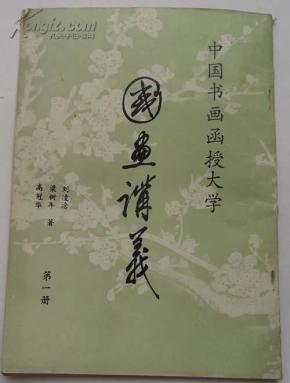 中国书画函授大学
国画讲义
刘凌沧
梁树年 著
高冠华
第一册